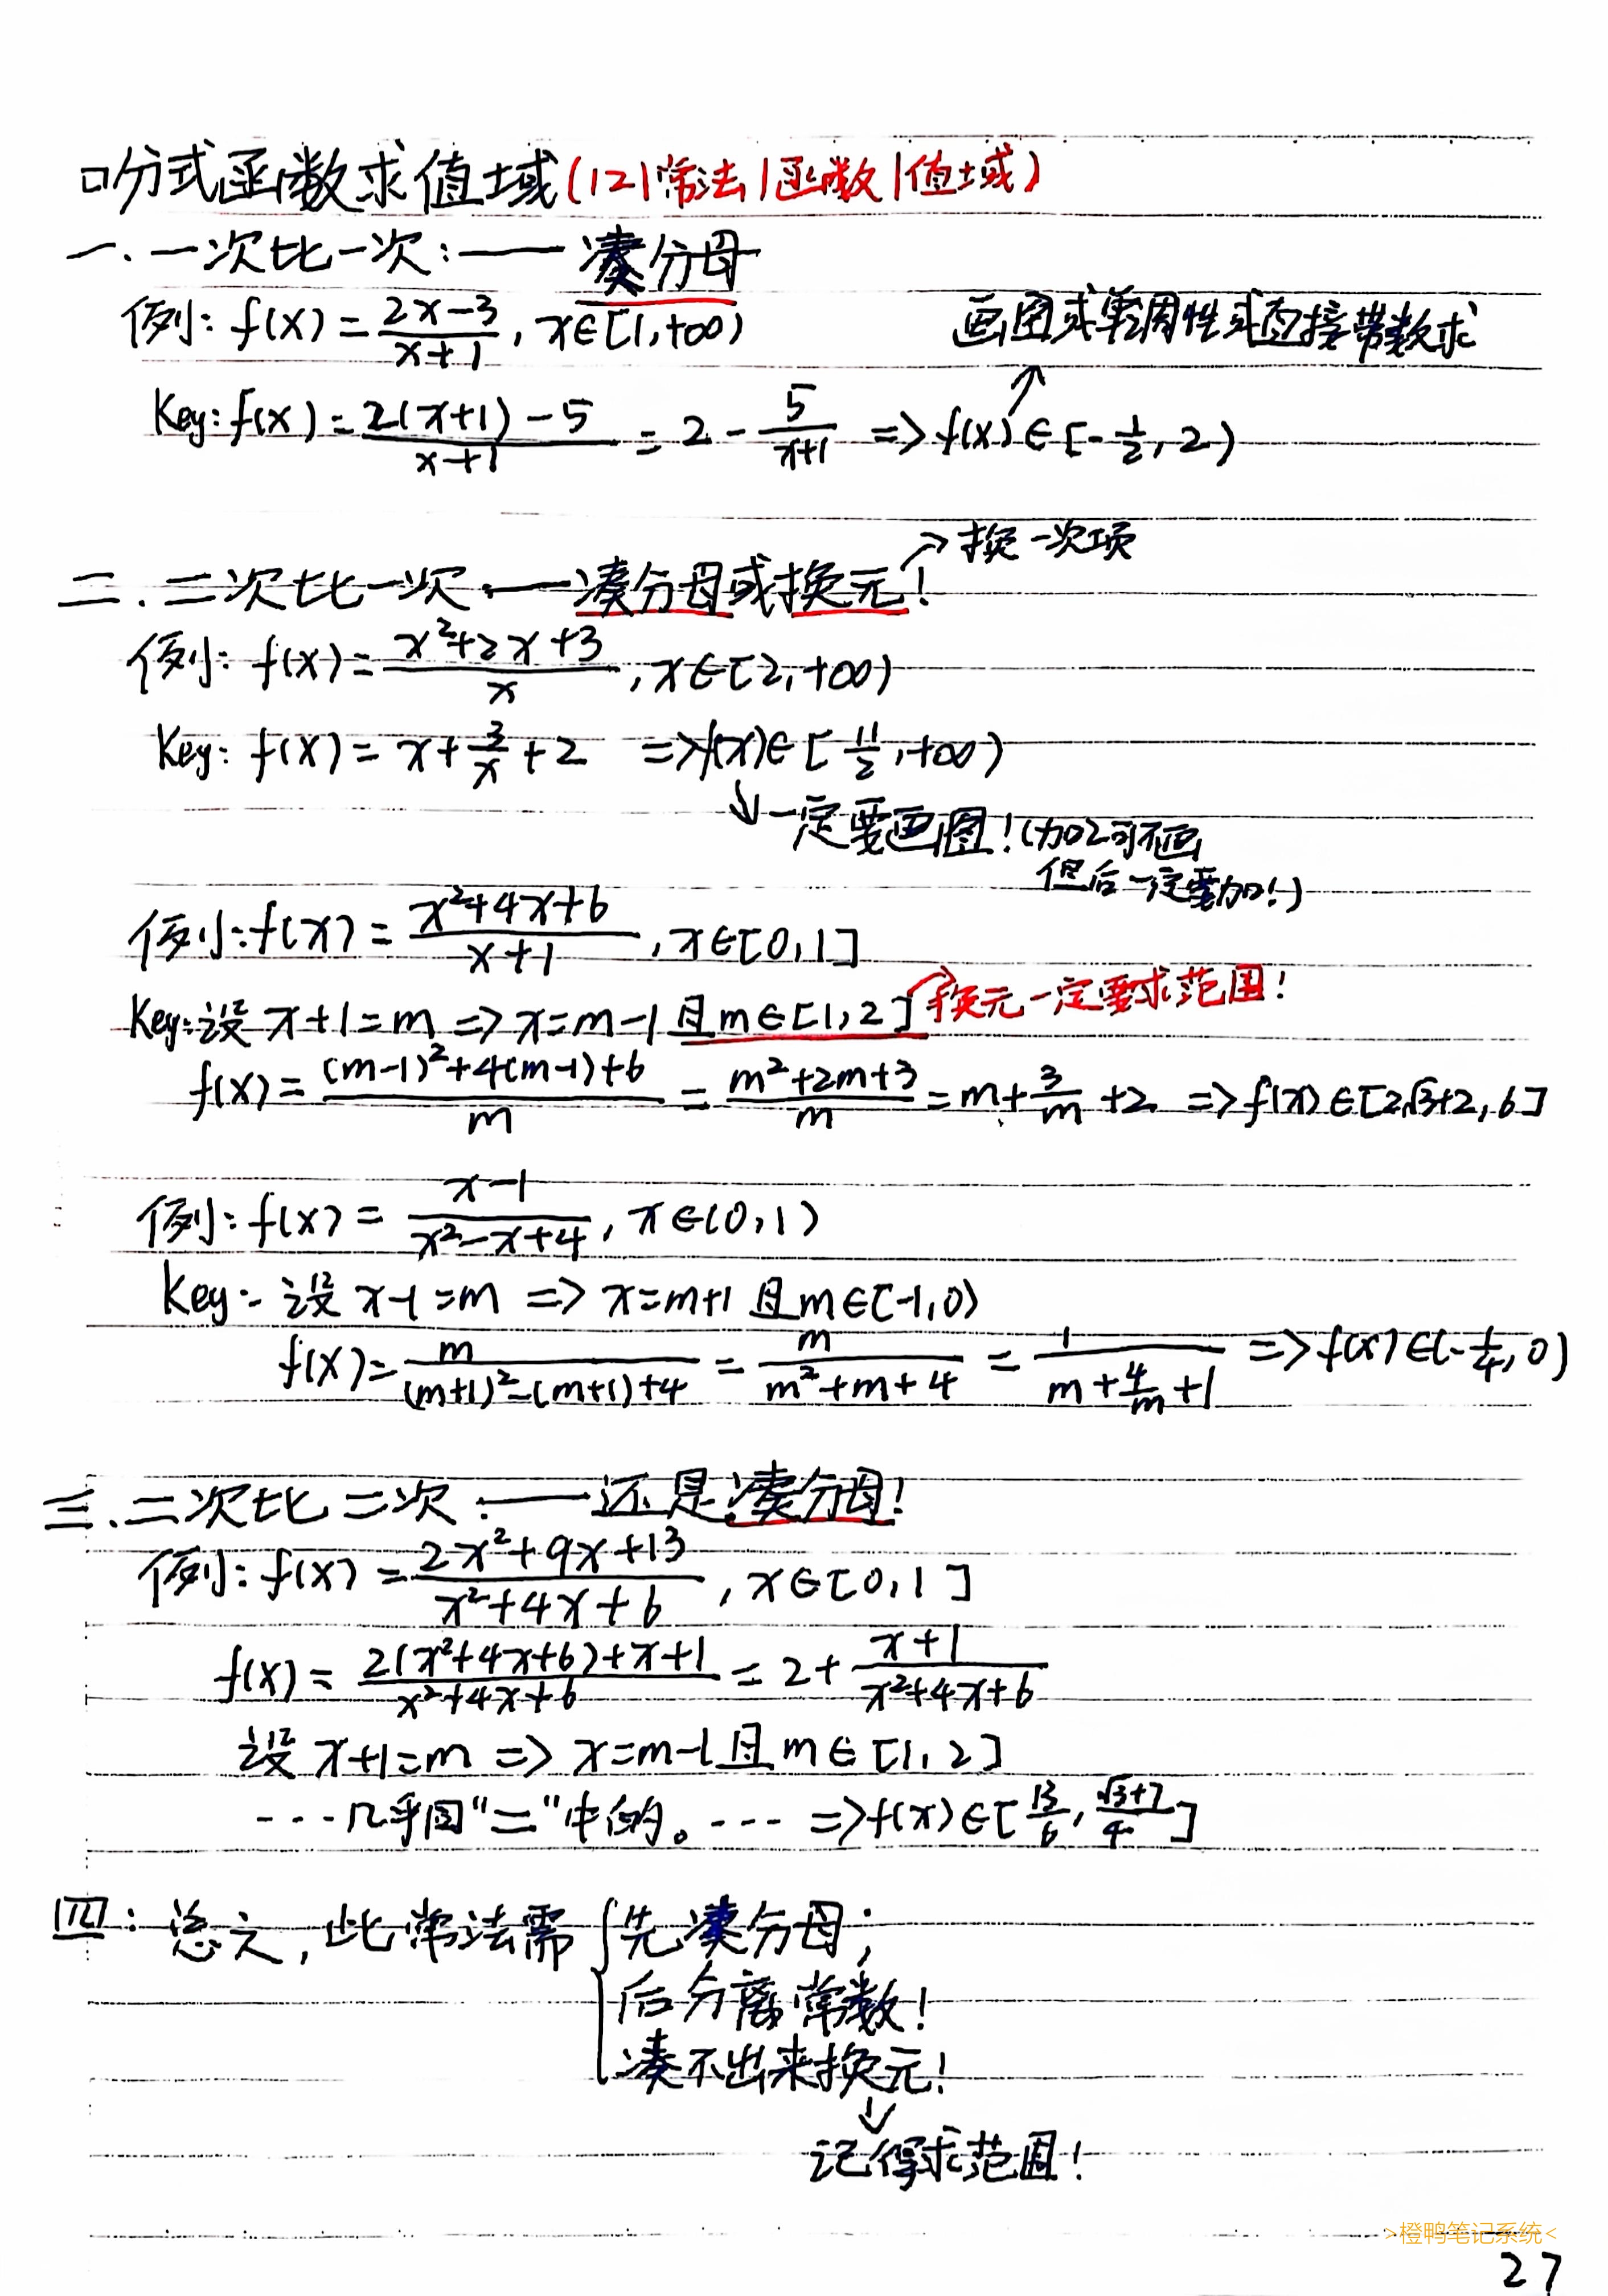 口分式函数求值域(121常法|函数|值域)
一.一次比一次:——凑分母
例:f(x)=(2x-3)/(x+1),x∈[1,+∞)
画图或单调性或直接带数求
↗
Key:f(x)=(2(x+1)-5)/(x+1)=2-5/(x+1)=>f(x)∈[-1/2,2)
↗换一次项
二.二次比一次:——凑分母或换元!
例:f(x)=(x²+2x+3)/x,x∈[2,+∞)
Key:f(x)=x+3/x+2 =>f(x)∈[11/2,+∞)
↓一定要画图!(加2可不画
但后一定要加!)
例:f(x)=(x²+4x+6)/(x+1),x∈[0,1]
Key:设x+1=m=>x=m-1且m∈[1,2]→换元一定要求范围!
f(x)=((m-1)²+4(m-1)+6)/m=(m²+2m+3)/m=m+3/m+2=>f(x)∈[2√3+2,6]
例:f(x)=(x-1)/(x²-x+4),x∈(0,1)
Key:设x-1=m=>x=m+1且m∈(-1,0)
f(x)=m/((m+1)²-(m+1)+4)=m/(m²+m+4)=1/(m+4/m+1)=>f(x)∈(-1/4,0)
三.二次比二次:——还是凑分母!
例:f(x)=(2x²+9x+13)/(x²+4x+6),x∈[0,1]
f(x)=(2(x²+4x+6)+x+1)/(x²+4x+6)=2+(x+1)/(x²+4x+6)
设x+1=m=>x=m-1且m∈[1,2]
···几乎同"二"中的。···=>f(x)∈[13/6,(√3+7)/4]
四:总之,此常法需{先凑分母;
后分离常数!
凑不出来换元!
↓
记得求范围!
>橙鸭笔记系统<
27